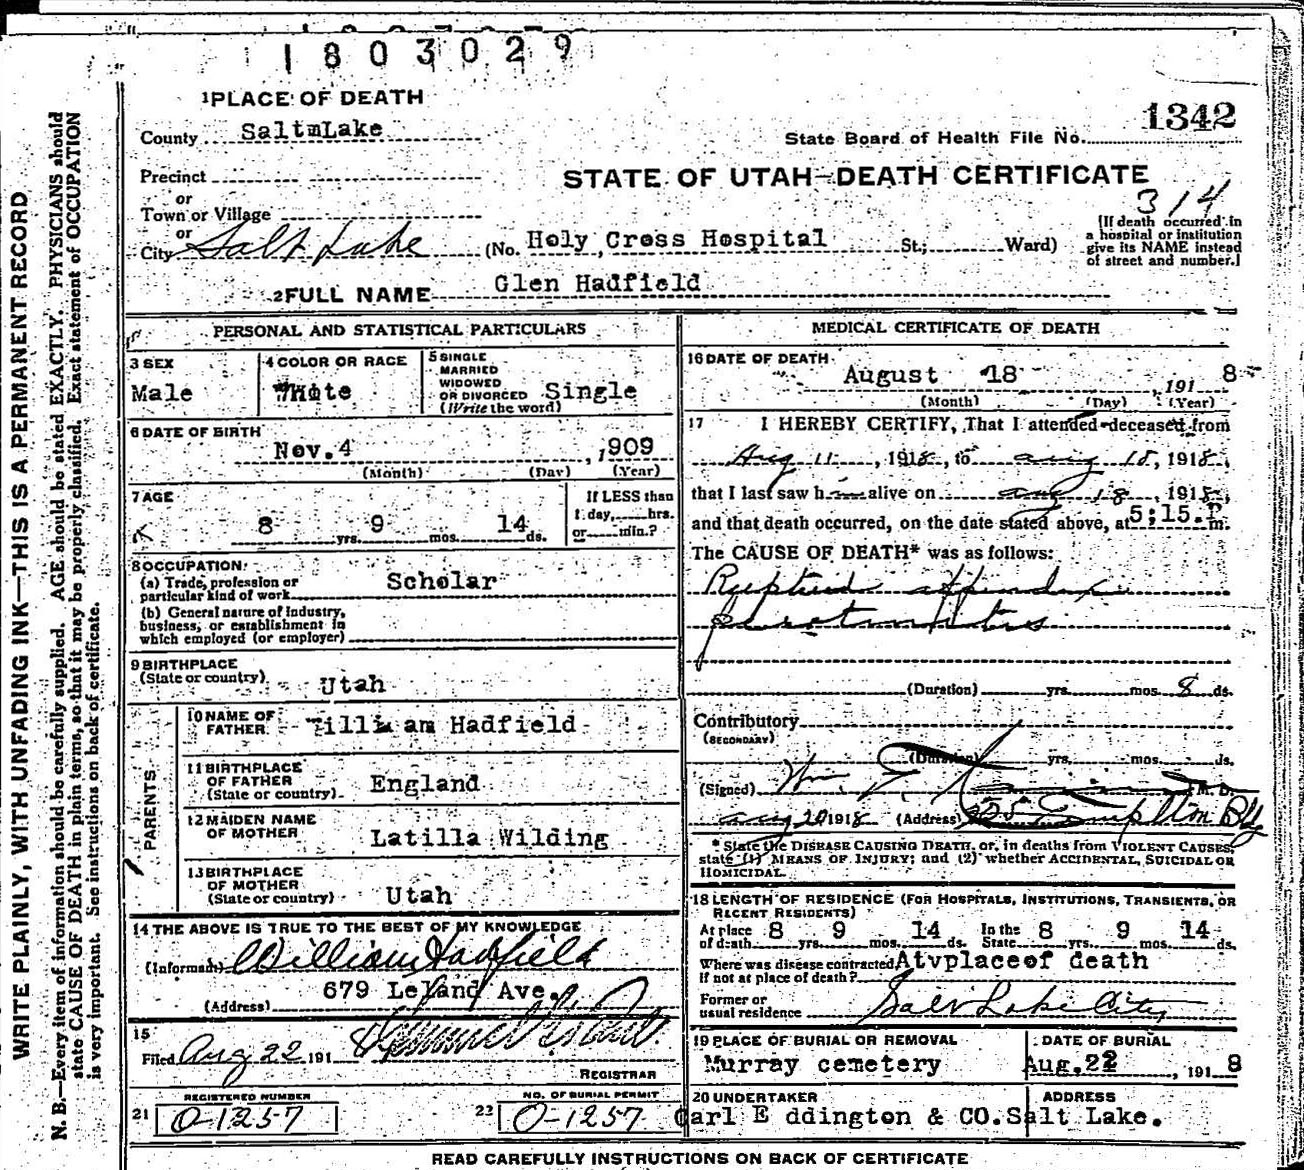 1803029
1 PLACE OF DEATH
County SaltmLake
1342
State Board of Health File No.
Precinct
or
Town or Village
or
City Salt Lake
STATE OF UTAH—DEATH CERTIFICATE
314
(No. Holy Cross Hospital St; Ward)
[If death occurred in
a hospital or institution
give its NAME instead
of street and number.]
2 FULL NAME Glen Hadfield
PERSONAL AND STATISTICAL PARTICULARS
3 SEX
Male
4 COLOR OR RACE
White
5 SINGLE
MARRIED
WIDOWED
OR DIVORCED Single
(Write the word)
6 DATE OF BIRTH
Nov. 4, 1909
(Month) (Day) (Year)
7 AGE
8 yrs. 9 mos. 14 ds.
If LESS than
1 day, hrs.
or min.?
8 OCCUPATION:
(a) Trade, profession or
particular kind of work Scholar
(b) General nature of industry,
business, or establishment in
which employed (or employer)
9 BIRTHPLACE
(State or country) Utah
PARENTS
10 NAME OF
FATHER illiam Hadfield
11 BIRTHPLACE
OF FATHER
(State or country) England
12 MAIDEN NAME
OF MOTHER Latilla Wilding
13 BIRTHPLACE
OF MOTHER
(State or country) Utah
14 THE ABOVE IS TRUE TO THE BEST OF MY KNOWLEDGE
(Informant) William Hadfield
(Address) 679 Leland Ave.
15
Filed Aug 22 1918
REGISTRAR
REGISTERED NUMBER
21 O-1257
NO. OF BURIAL PERMIT
22 O-1257
MEDICAL CERTIFICATE OF DEATH
16 DATE OF DEATH
August 18, 1918
(Month) (Day) (Year)
17 I HEREBY CERTIFY, That I attended deceased from
Aug 11, 1918, to Aug 18, 1918,
that I last saw h alive on Aug 18, 1918,
and that death occurred, on the date stated above, at 5;15.P m.
The CAUSE OF DEATH* was as follows:
Ruptured appendix
peritonitis
(Duration) yrs. mos. 8 ds.
Contributory
(SECONDARY)
(Duration) yrs. mos. ds.
(Signed) Wm. M. D.
Aug 20 1918 (Address) Templton Bldg
* State the DISEASE CAUSING DEATH, or, in deaths from VIOLENT CAUSES,
state (1) MEANS OF INJURY; and (2) whether ACCIDENTAL, SUICIDAL OR
HOMICIDAL.
18 LENGTH OF RESIDENCE (FOR HOSPITALS, INSTITUTIONS, TRANSIENTS, OR
RECENT RESIDENTS)
At place
of death 8 yrs. 9 mos. 14 ds. In the
State 8 yrs. 9 mos. 14 ds.
Where was disease contracted, Atvplaceof death
If not at place of death?
Former or
usual residence Salt Lake City
19 PLACE OF BURIAL OR REMOVAL
Murray cemetery
DATE OF BURIAL
Aug. 22, 1918
20 UNDERTAKER
Carl E ddington & CO.
ADDRESS
Salt Lake.
READ CAREFULLY INSTRUCTIONS ON BACK OF CERTIFICATE
WRITE PLAINLY, WITH UNFADING INK—THIS IS A PERMANENT RECORD
N. B.—Every item of information should be carefully supplied. AGE should be stated EXACTLY. PHYSICIANS should
state CAUSE OF DEATH in plain terms, so that it may be properly classified. Exact statement of OCCUPATION
is very important. See instructions on back of certificate.